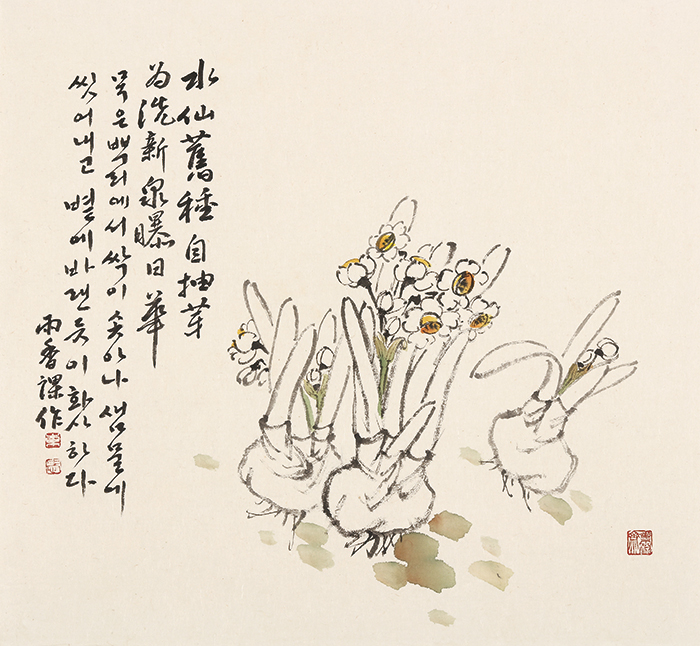 水仙舊種自抽芽
为洗新泉曝日華
묵은 뿌리에서 싹이 솟아나 샘물에
씻어내고 볕에 바랜 듯이 화사하다
雨香課作